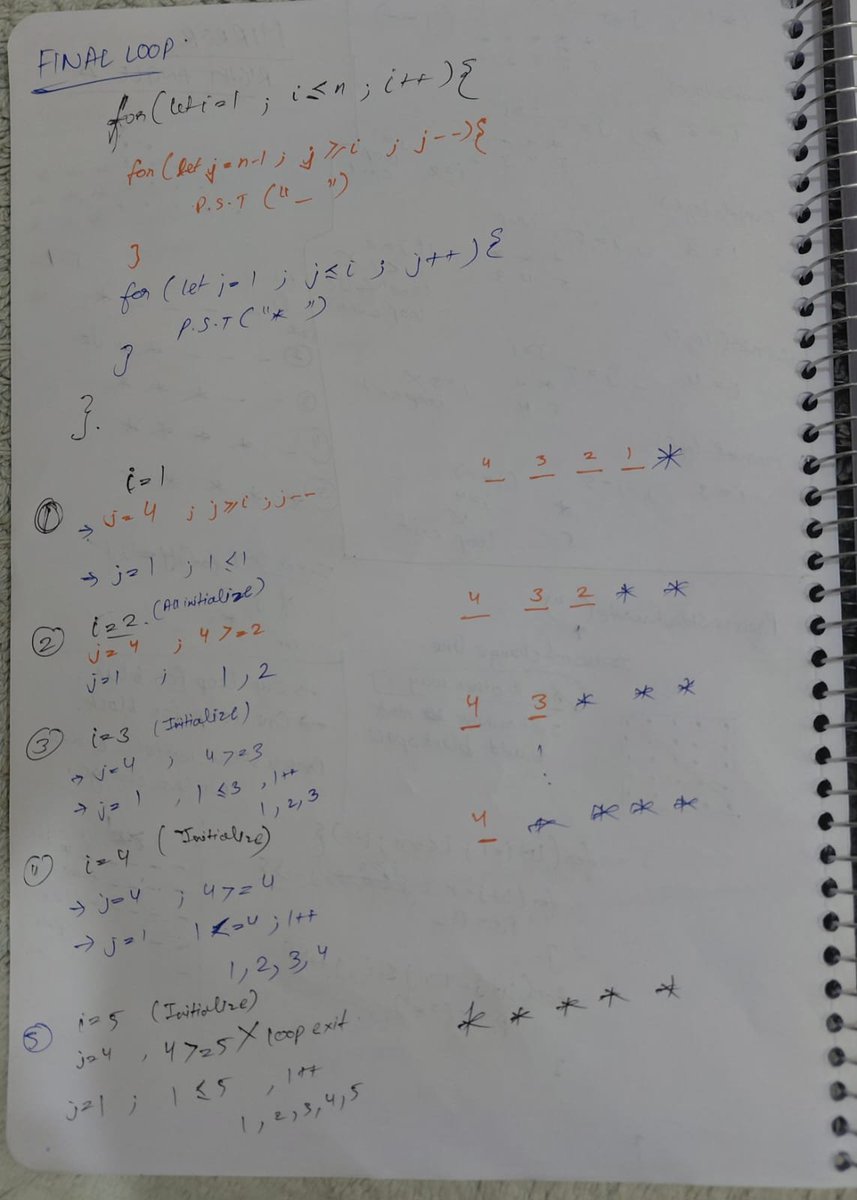 FINAL LOOP.
for(let i=1 ; i≤n ; i++){
for(let j=n-1 ; j≥i ; j--){
P.S.T ("_")
}
for (let j=1 ; j≤i ; j++){
P.S.T ("*")
}
}.
i=1
4 3 2 1 *
① → j=4 ; j≥i ; j--
→ j=1 ; 1≤1
② i=2. (All initialize)
4 3 2 * *
j=4 ; 4>=2
j=1 ; 1,2
③ i=3 (Initialize)
4 3 * * *
→ j=4 , 4>=3
→ j=1 , 1≤3 , 1++
1,2,3
i=4 (Initialize)
4 * * * *
→ j=4 ; 4>=4
→ j=1 1<=4 ; 1++
1,2,3,4
⑤ i=5 (Initialize)
* * * * *
j=4 , 4>=5 X loop exit
j=1 ; 1≤5 , 1++
1,2,3,4,5